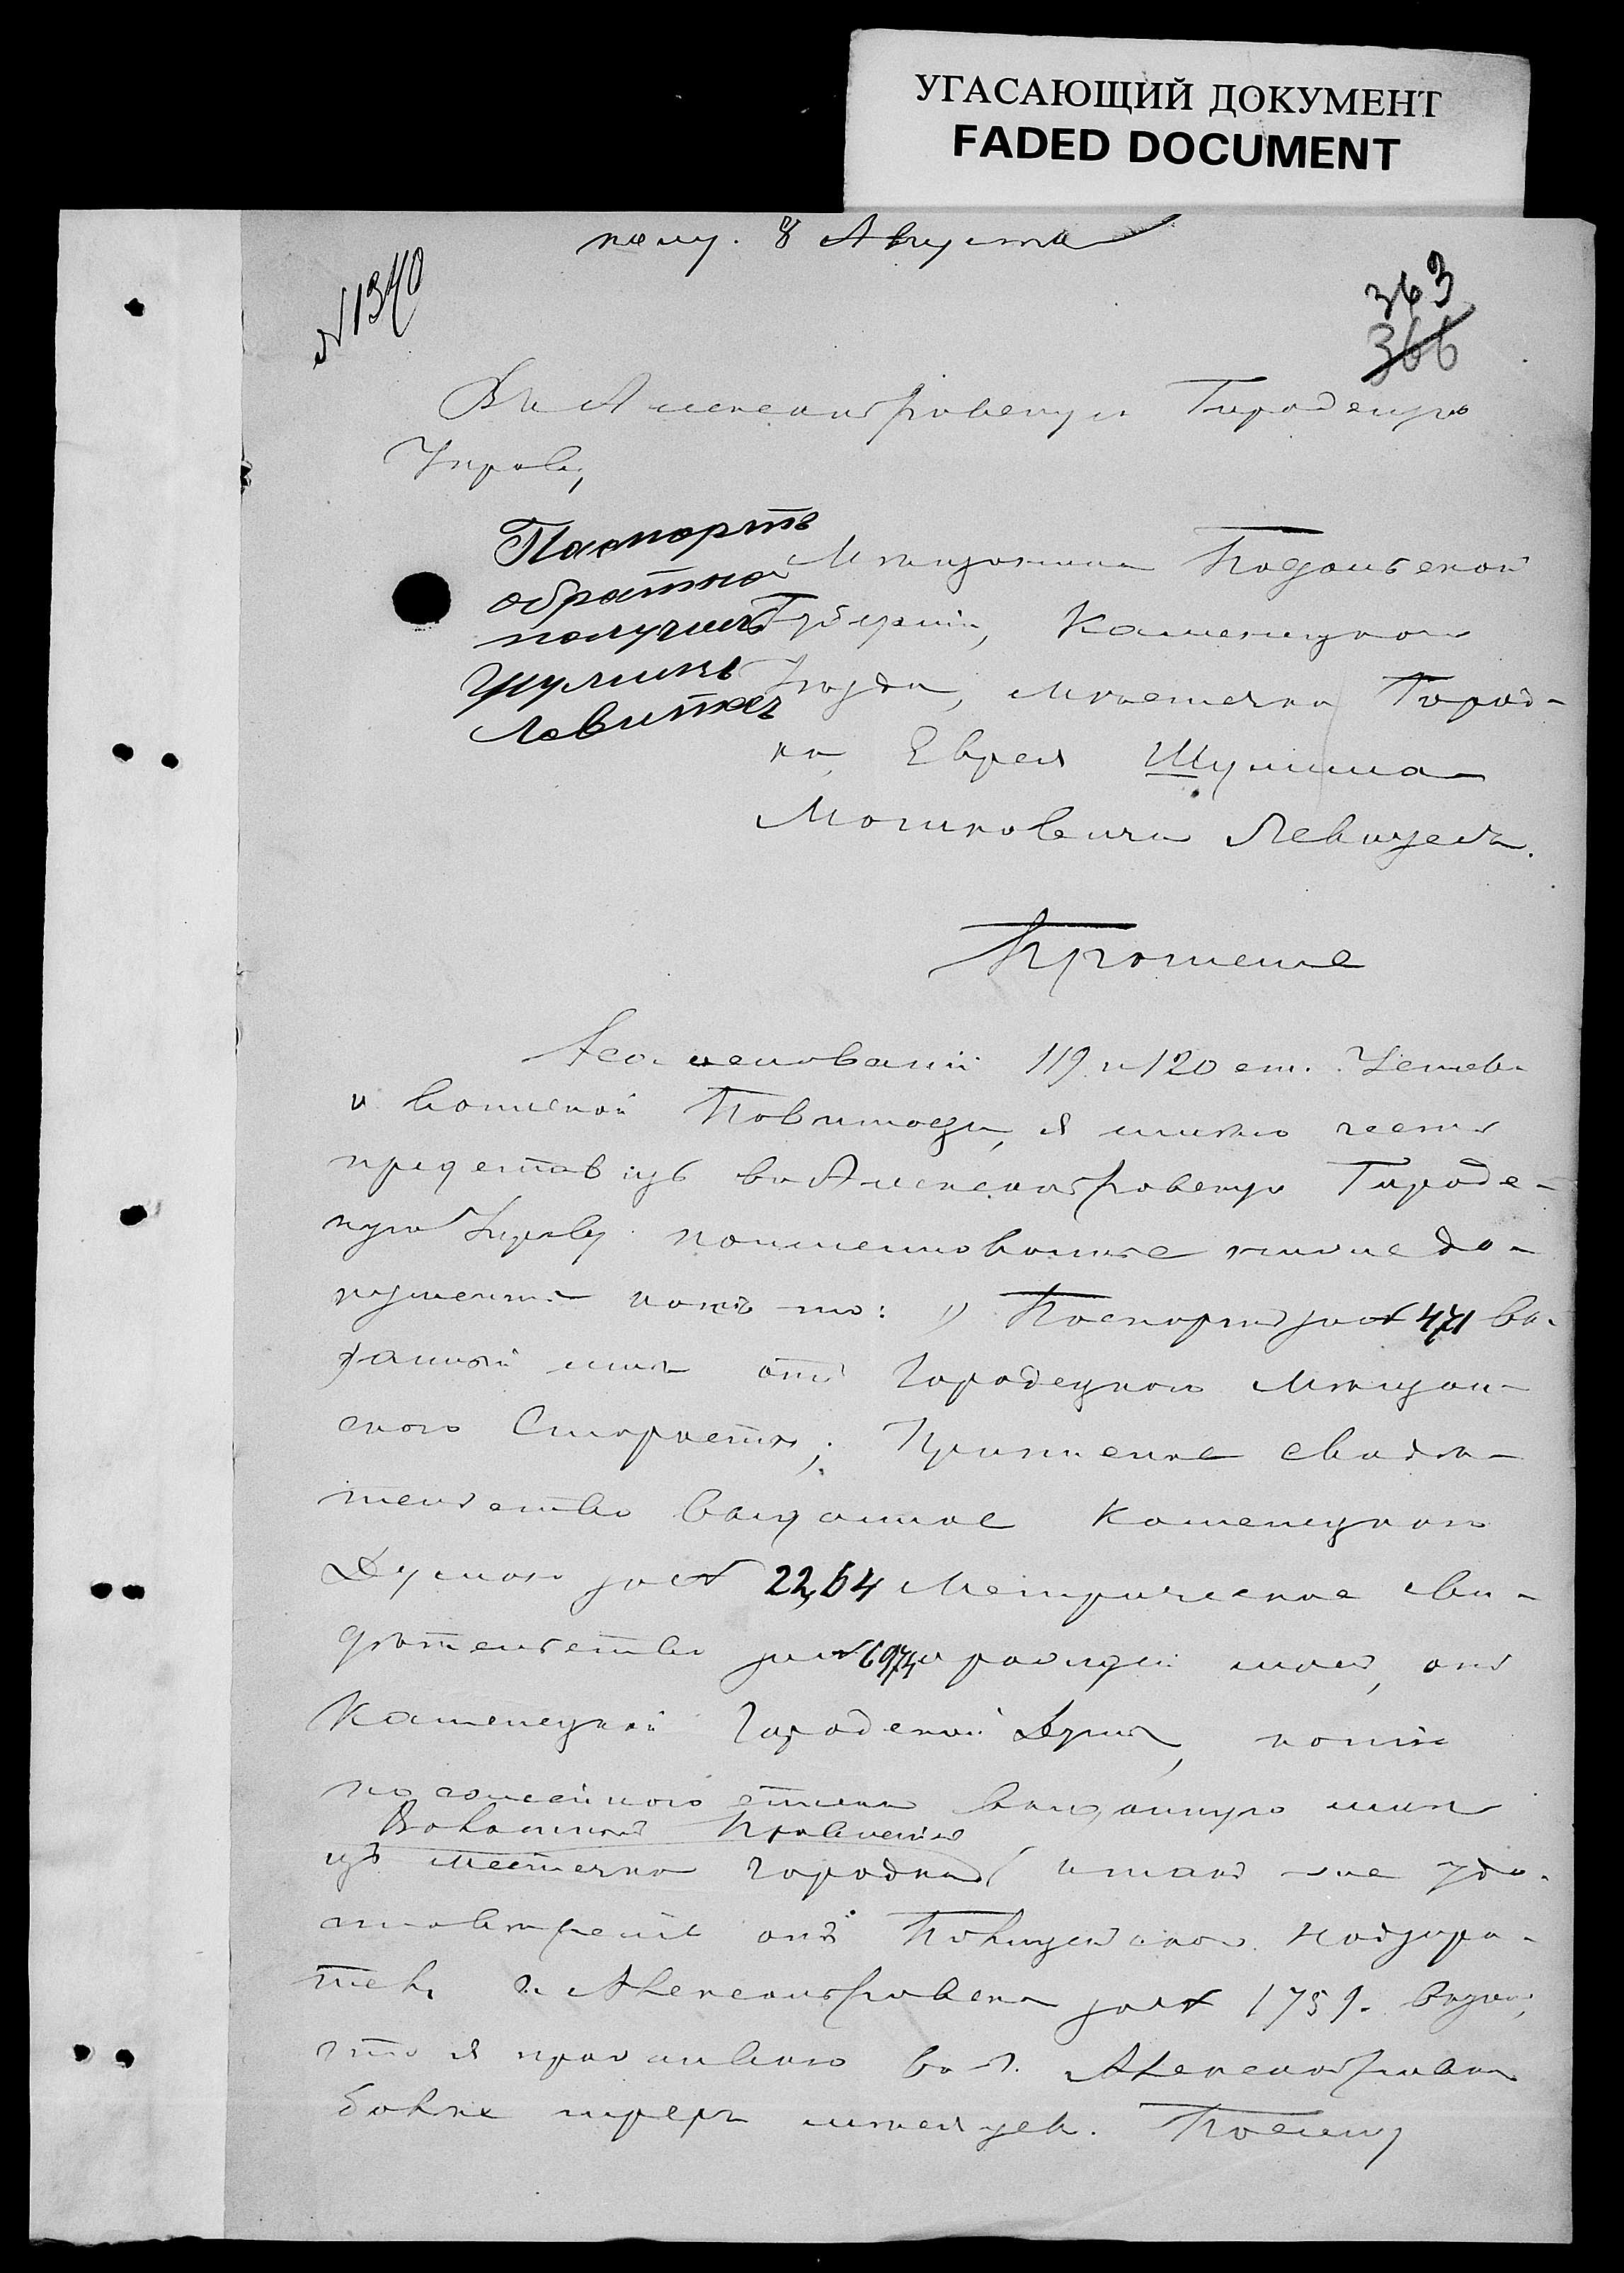 УГАСАЮЩИЙ ДОКУМЕНТ
FADED DOCUMENT
полу. 8 Августа
№ 1340
363
366
Въ Александровскую Городскую
Управу,
Паспортъ
обратно
получилъ
Шулимъ
Левитъ
Мѣщанина Подольской
Губерніи, Каменецкого
Уѣзда, мѣстечка Город-
ка, Еврея Шулима
Мошковича
Прошение
На основаніи 119 и 120 ст. Устава
о воинской Повиности, я имѣю честь
представить въ Александровскую Городс-
кую Управу поименованые ниже до-
кументы какъ то: 1) Паспортъ за № 471 вы-
данный мнѣ отъ Городецкого Мѣщан-
ского Старосты; Призывное свидѣ-
тельство выданное Каменецкою
Думою за № 2264 Метрическое сви-
дѣтельство за № 697 о рождении моем, отъ
Каменецкой Городской Думы, копію
посемейного списка выданную мнѣ
Правления
изъ местечка Городка и также удо-
отъ Полицейского Надзира-
теля г. Александровска за № 1759. въ томъ,
что я проживаю въ г. Александровске
более трехъ месяцев. Посему